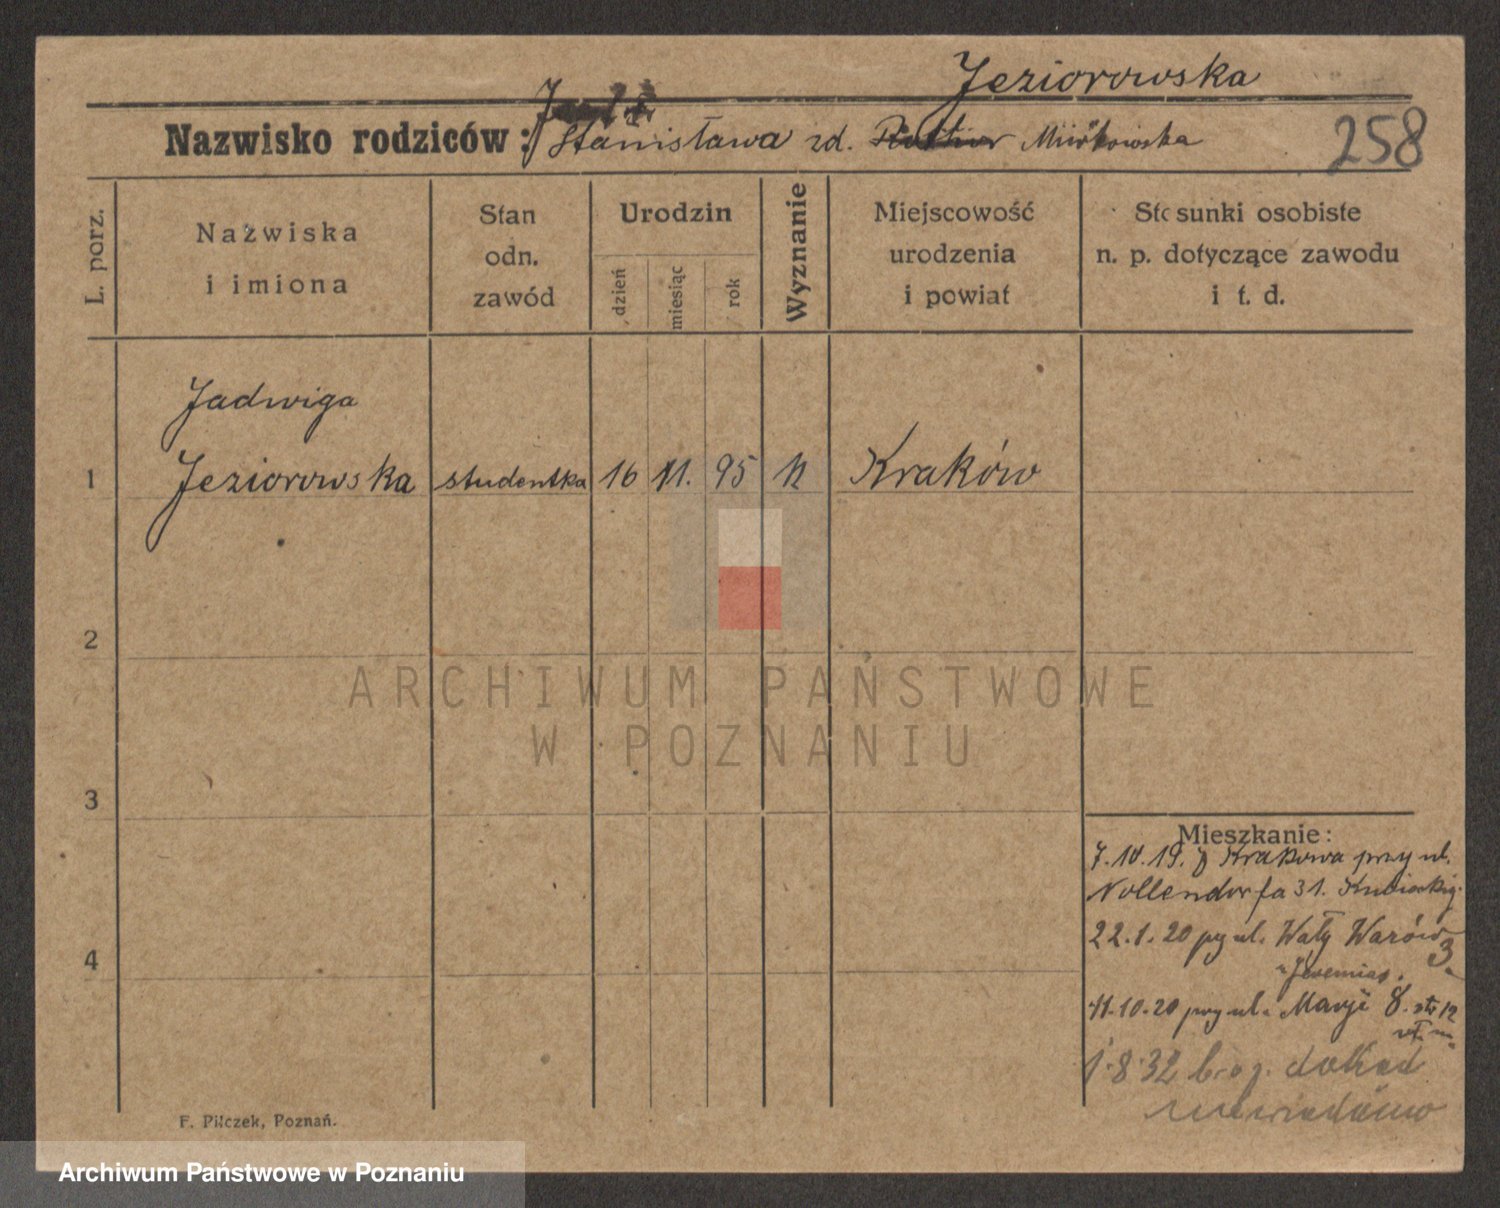 Jeziorowska
Nazwisko rodziców: Stanisława zd. Mińkowska
258
L. porz.
Nazwiska
i imiona
Stan
odn.
zawód
Urodzin
dzień
miesiąc
rok
Wyznanie
Miejscowość
urodzenia
i powiat
Stosunki osobiste
n. p. dotyczące zawodu
i t. d.
Jadwiga
1 Jeziorowska studentka 16 11. 95 Kraków
2
ARCHIWUM PAŃSTWOWE
W POZNANIU
3
Mieszkanie:
7.10.19. z Krakowa przy ul.
Nollendorfa 31.
4
22.1.20 przy ul. Wały Wazów 3.
Jeremias.
11.10.20 przy ul. Marji 8.
1.8.32 dokąd
niewiadomo
F. Pilczek, Poznań.
Archiwum Państwowe w Poznaniu